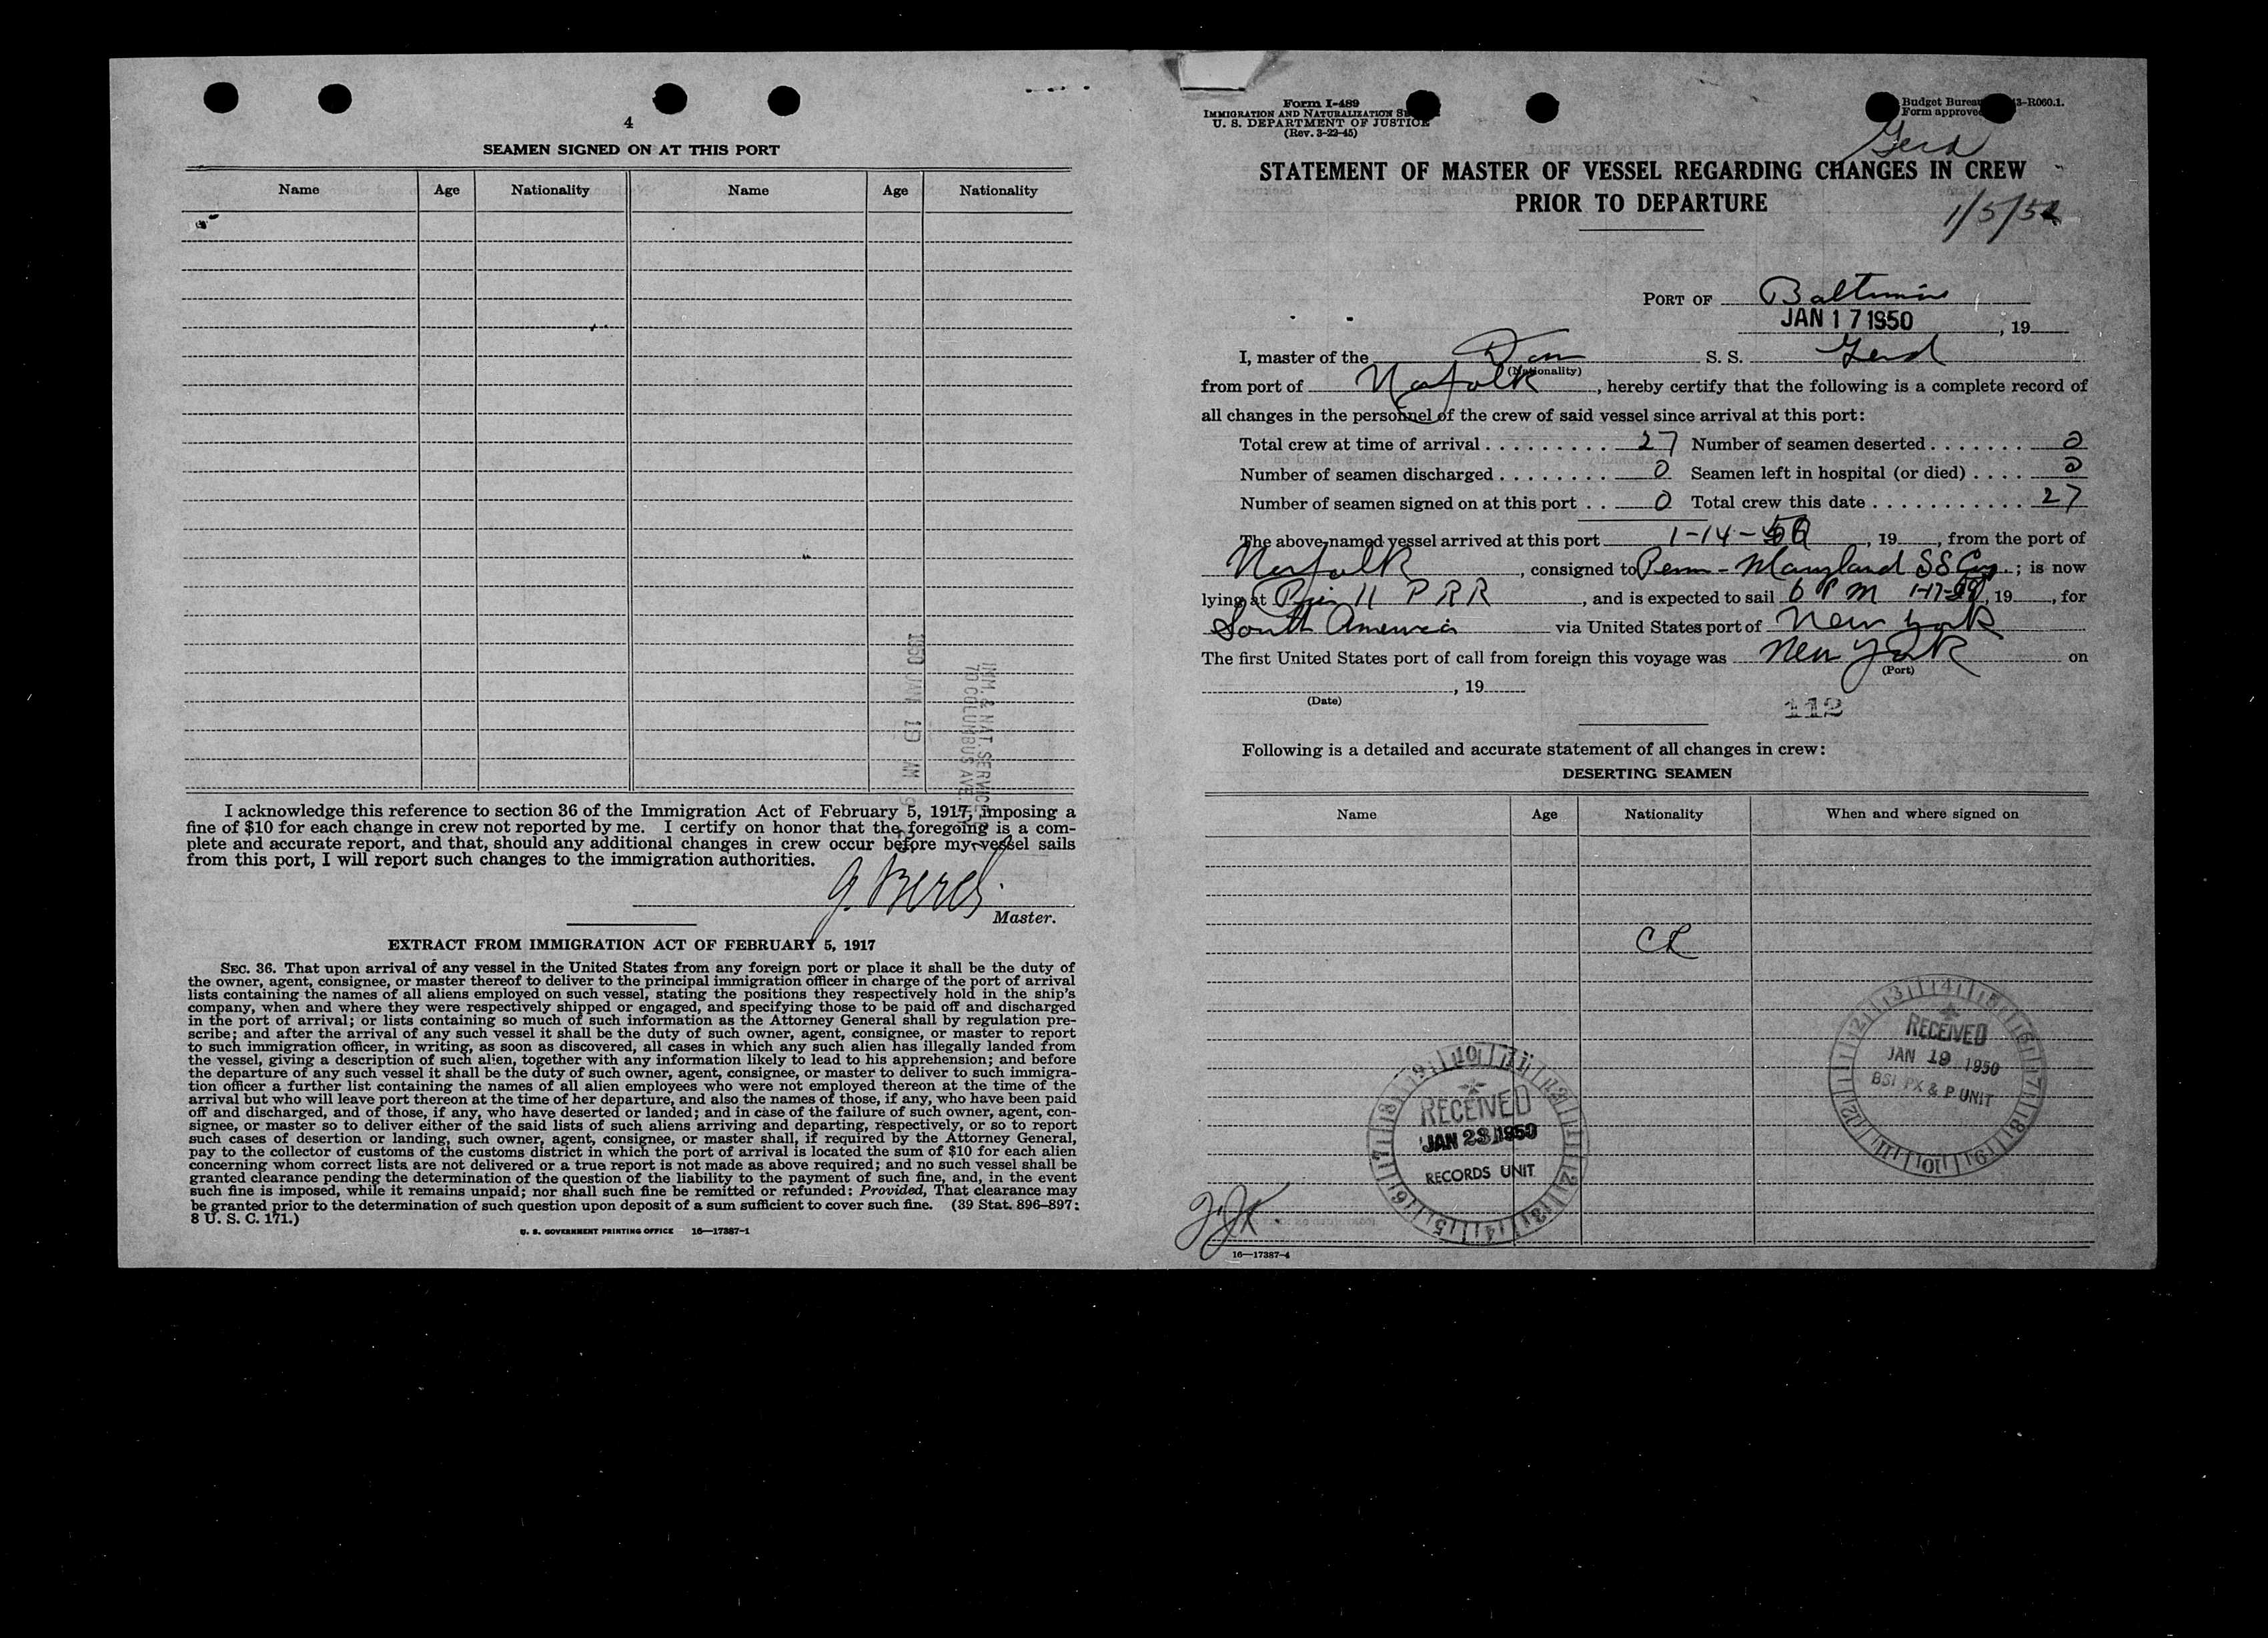 4
SEAMEN SIGNED ON AT THIS PORT
Name Age Nationality Name Age Nationality
1950 JAN 19 AM 9
IMM. & NAT. SERVICE
70 COLUMBUS AVE
I acknowledge this reference to section 36 of the Immigration Act of February 5, 1917, imposing a
fine of $10 for each change in crew not reported by me. I certify on honor that the foregoing is a com-
plete and accurate report, and that, should any additional changes in crew occur before my vessel sails
from this port, I will report such changes to the immigration authorities.
Master.
EXTRACT FROM IMMIGRATION ACT OF FEBRUARY 5, 1917
SEC. 36. That upon arrival of any vessel in the United States from any foreign port or place it shall be the duty of
the owner, agent, consignee, or master thereof to deliver to the principal immigration officer in charge of the port of arrival
lists containing the names of all aliens employed on such vessel, stating the positions they respectively hold in the ship's
company, when and where they were respectively shipped or engaged, and specifying those to be paid off and discharged
in the port of arrival; or lists containing so much of such information as the Attorney General shall by regulation pre-
scribe; and after the arrival of any such vessel it shall be the duty of such owner, agent, consignee, or master to report
to such immigration officer, in writing, as soon as discovered, all cases in which any such alien has illegally landed from
the vessel, giving a description of such alien, together with any information likely to lead to his apprehension; and before
the departure of any such vessel it shall be the duty of such owner, agent, consignee, or master to deliver to such immigra-
tion officer a further list containing the names of all alien employees who were not employed thereon at the time of the
arrival but who will leave port thereon at the time of her departure, and also the names of those, if any, who have been paid
off and discharged, and of those, if any, who have deserted or landed; and in case of the failure of such owner, agent, con-
signee, or master so to deliver either of the said lists of such aliens arriving and departing, respectively, or so to report
such cases of desertion or landing, such owner, agent, consignee, or master shall, if required by the Attorney General,
pay to the collector of customs of the customs district in which the port of arrival is located the sum of $10 for each alien
concerning whom correct lists are not delivered or a true report is not made as above required; and no such vessel shall be
granted clearance pending the determination of the question of the liability to the payment of such fine, and, in the event
such fine is imposed, while it remains unpaid; nor shall such fine be remitted or refunded: Provided, That clearance may
be granted prior to the determination of such question upon deposit of a sum sufficient to cover such fine. (39 Stat. 896–897;
8 U. S. C. 171.)
U. S. GOVERNMENT PRINTING OFFICE 16—17387-1
Form I-489
IMMIGRATION AND NATURALIZATION
U. S. DEPARTMENT OF JUSTICE
(Rev. 3-22-45)
Budget Bureau 3-R060.1.
Form approved
Gerd
STATEMENT OF MASTER OF VESSEL REGARDING CHANGES IN CREW
PRIOR TO DEPARTURE
1/5/50
PORT OF Baltimore
JAN 17 1950, 19
I, master of the Dan S. S. Gerd
(Nationality)
from port of Norfolk, hereby certify that the following is a complete record of
all changes in the personnel of the crew of said vessel since arrival at this port:
Total crew at time of arrival . . . . . . . . . . 27 Number of seamen deserted . . . . . . . 0
Number of seamen discharged . . . . . . . . 0 Seamen left in hospital (or died) . . . . 0
Number of seamen signed on at this port . . 0 Total crew this date . . . . . . . . . . . 27
The above-named vessel arrived at this port 1-14-50, 19, from the port of
Norfolk, consigned to Penn-Maryland SS Corp.; is now
lying at Pier 11 PRR, and is expected to sail 6 PM 1-17-50, 19, for
South America via United States port of New York
The first United States port of call from foreign this voyage was New York on
(Port)
, 19
(Date)
112
Following is a detailed and accurate statement of all changes in crew:
DESERTING SEAMEN
Name Age Nationality When and where signed on
CR
RECEIVED
JAN 19 1950
BSI PX & P UNIT
RECEIVED
JAN 23 1950
RECORDS UNIT
16—17387-4